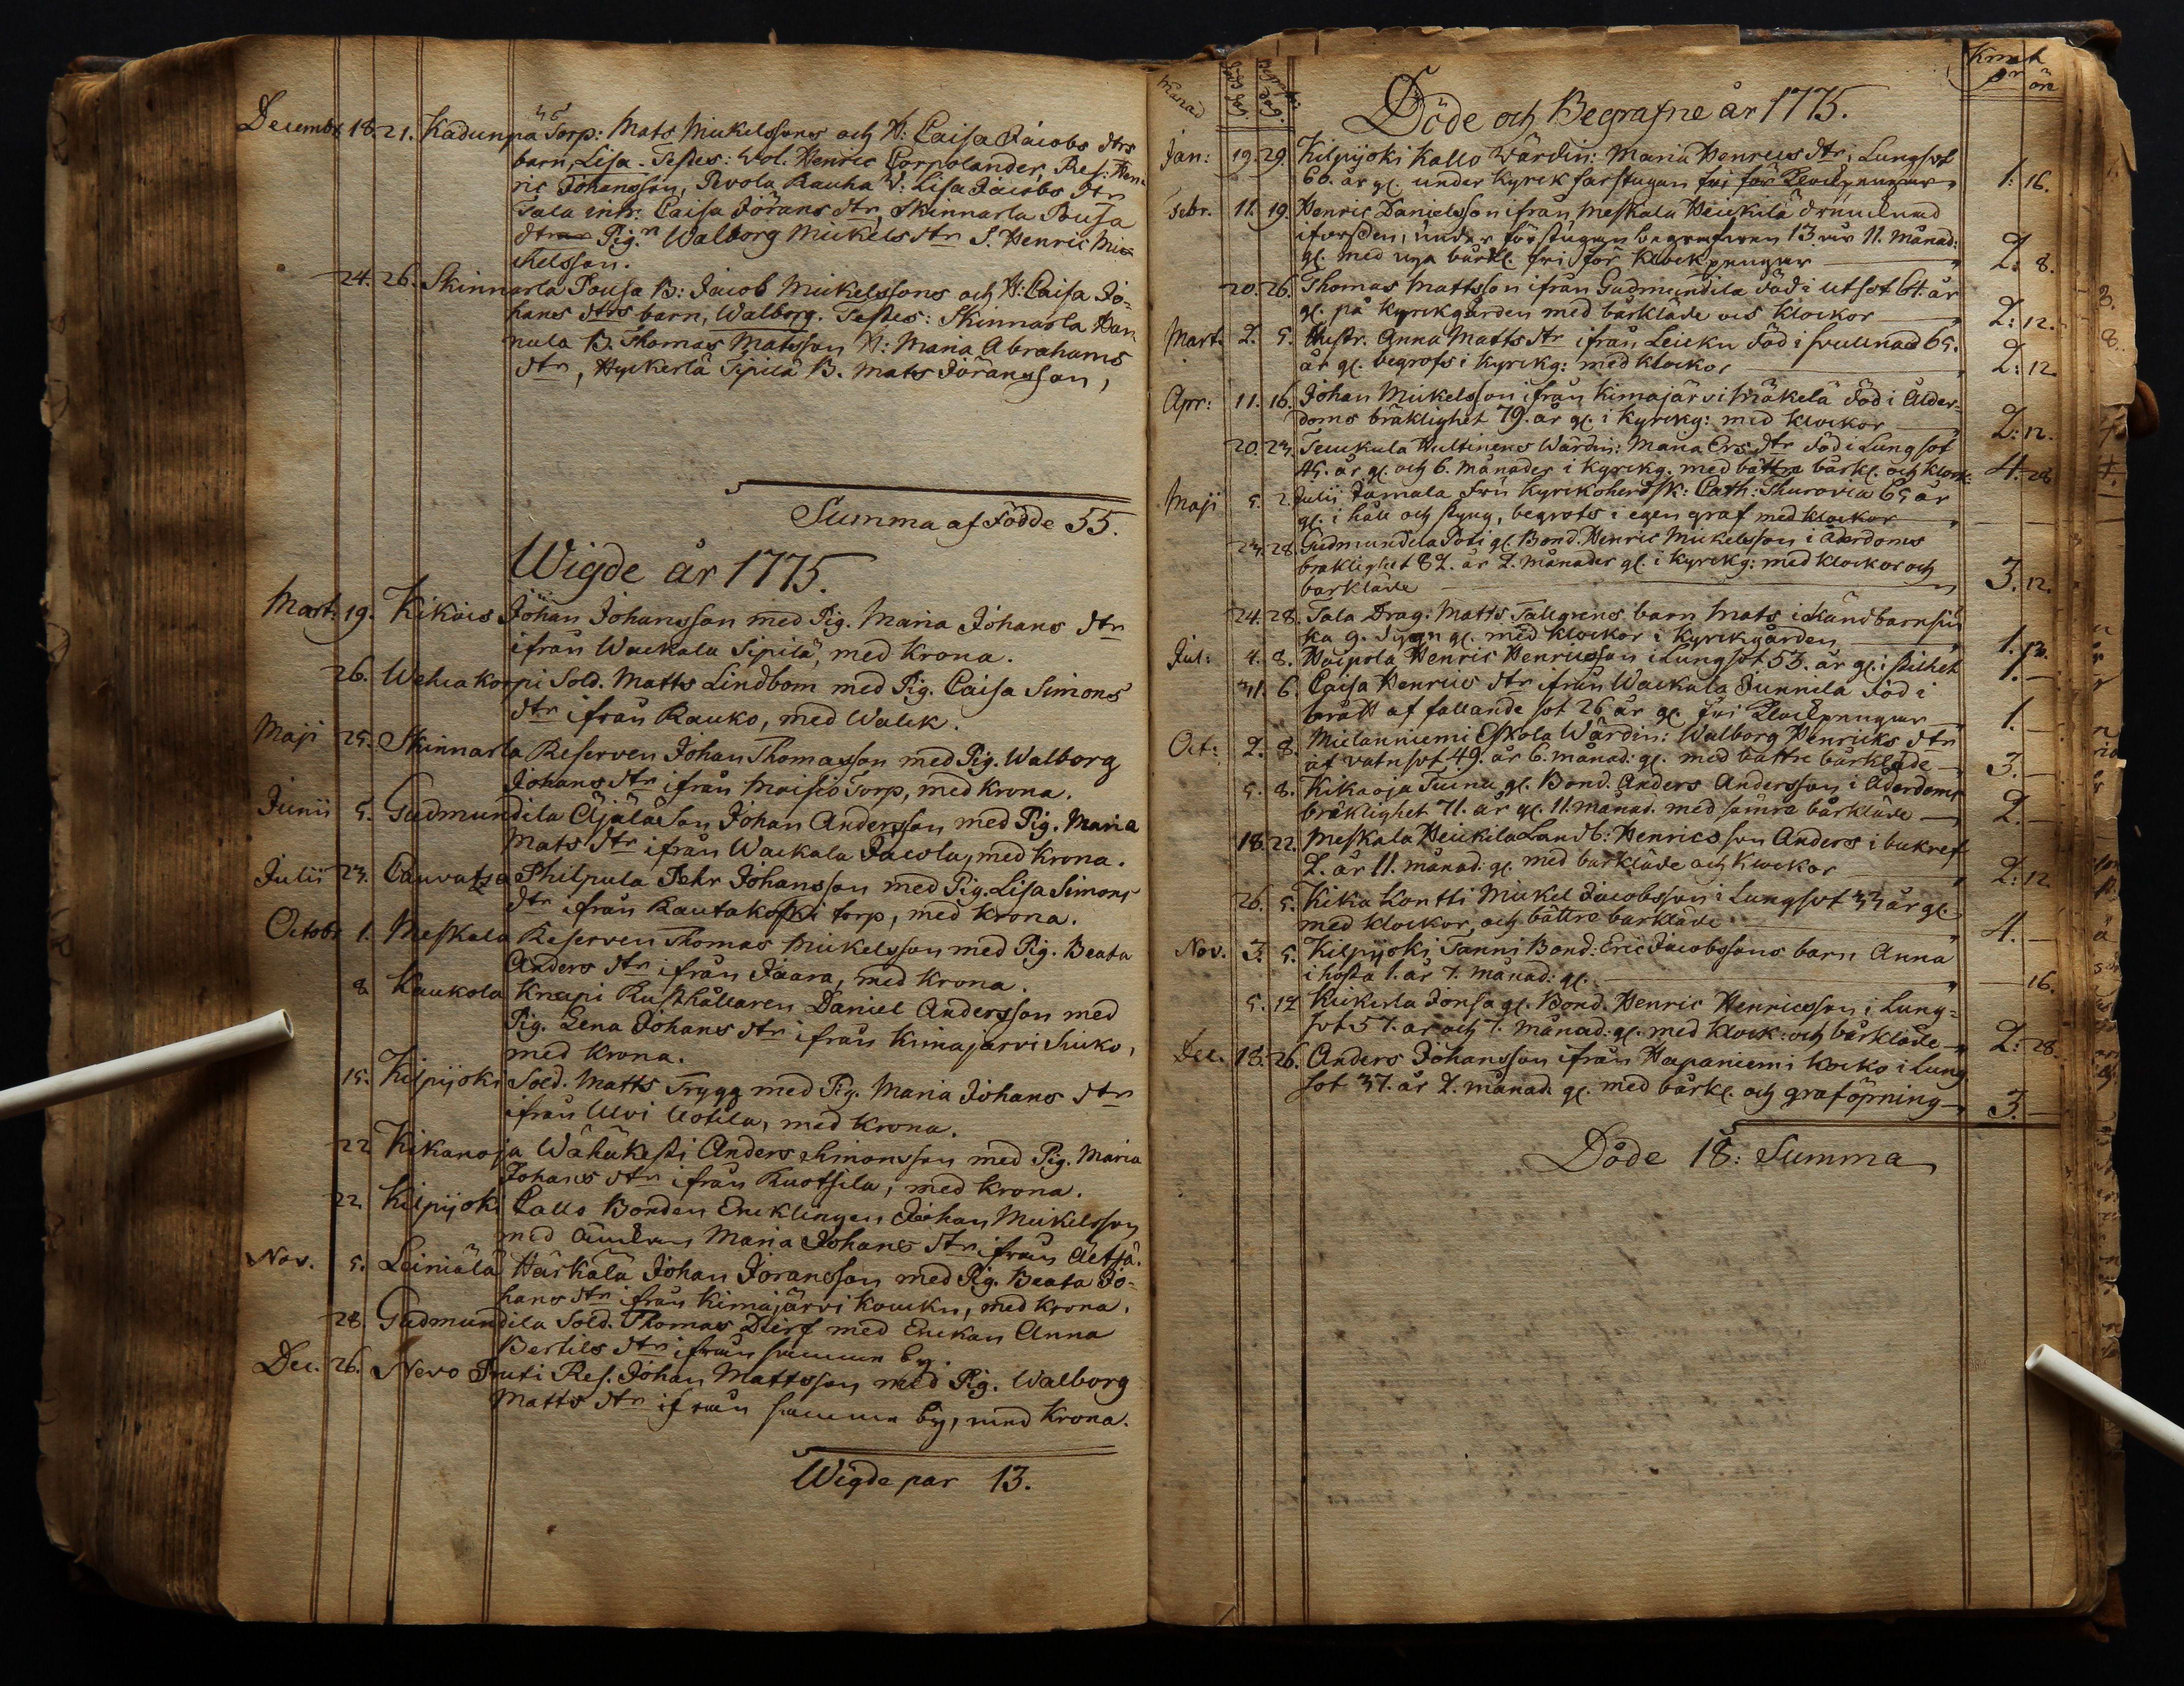 Decembr 18. 21. Kadunpä Torp: Mats Mickelssons och H: Caisa Jacobs dtrs
barn, Lisa. Testes: Vol. Henric Corpolander, Res: Hen-
ric Johansson, Pevola Rauha W: Lisa Jacobs dtr
Tala inh: Caisa Jörans dtr, Skinnarla Pousa
Pig:n Walborg Mickels dtr S. Henric Mic-
kelsson.
24. 26. Skinnarla Pousa B: Jacob Mickelssons och H: Caisa Jo-
hans dtrs barn, Walborg. Testes: Skinnarla Han-
nula B. Thomas Matsson H: Maria Abrahams
dtr, Hyckerlä Sipilä B. Mats Jöransson,
Summa af Födde 55.
Wigde år 1775.
Mart: 19. Kikois Johan Johansson med Pig. Maria Johans dtr
ifrån Wackala Sipilä, med Krona.
26. Wehtakorpi Sold. Matts Lindbom med Pig. Caisa Simons
dtr ifrån Rauko, med Walck.
Maji 25. Skinnarla Reserven Johan Thomasson med Pig. Walborg
Johans dtr ifrån Maisio Torp, med Krona.
Junii 5. Gudmundila Äjälä Son Johan Andersson med Pig. Maria
Mats dtr ifrån Wackala Jacola, med Krona.
Julii 23. Cauvatsa Philpula Pehr Johansson med Pig. Lisa Simons
dtr ifrån Rautakoski torp, med Krona.
Octobr 1. Meskala Reserven Thomas Mickelsson med Pig. Beata
Anders dtr ifrån Jaara, med Krona.
8 Kaukola Knapi Rusthållaren Daniel Andersson med
Pig. Lena Johans dtr ifrån Kimajärvi Suko,
med Krona.
15. Kilpijoki Sold. Matts Trygg med Pig. Maria Johans dtr
ifrån Ulvi Uotila, med Krona.
22 Kikanoja Wähäkesti Anders Simonsson med Pig. Maria
Johans dtr ifrån Ruotsila, med Krona.
22 Kilpijoki Callo Bonden Encklingen Johan Mickelsson
med Maria Johans dtr ifrån Äetsä.
Nov. 5. Leiniälä Härkälä Johan Jöransson med Pig. Beata Jo-
hans dtr ifrån Kimajärvi Koucku, med Krona.
28. Gudmundila Sold. Thomas Dierf med Enckan Anna
Bertils dtr ifrån samma by.
Dec. 26. Nevo Pruti Res. Johan Mattsson med Pig. Walborg
Matts dtr ifrån samma by, med Krona.
Wigde par 13.
Månad
Död dag.
Begrafn. dag.
Döde och Begrafne år 1775.
Kmt
öre
Jan: 19. 29. Kilpijoki Kallo Wärdin: Maria Henrics dtr, Lungsot
60. år gl. under Kyrck farstugan fri för Klockpengar 1: 16.
Febr. 11. 19. Henric Danielsson ifrån Meskala Heickilä drunknad
i forsden, under förstugan begrafven 13. år 11. Månad:
gl. med nya bårkl. fri för Klockpengar 2: 8.
20. 26. Thomas Mattsson ifrån Gudmundila död i Utsot 64. år
gl. på Kyrckgården med bårkläde och klockor 2: 12.
Mart. 2. 5. Hustr. Anna Matts dtr ifrån Leicku död i svullnad 65.
år gl. begrofs i Kyrckg: med klockor 2: 12.
Apr: 11. 16. Johan Mickelsson ifrån Kimajärvi Mäkelä död i Ålder-
doms bräklighet 79. år gl. i Kyrckg: med klockor 2: 12.
20. 23. Teuckula Hultinens Wärdin: Maria Ers dtr död i Lungsot
45. år gl. och 6. Månader i Kyrckg. med bättre bårkl. och klock: 4. 28
Maji 5. 2 Julii Jamala Fru Kyrckoherdsk: Cath: Thurovia 65 år
gl. i håll och styng, begrofs i egen graf med klockor
23. 28 Gudmundila Poti gl. Bond. Henric Mickelsson i Åderdoms
bräklighet 82. år 2. Månader gl. i Kyrckg: med klockor och
bårkläde 3. 12.
24. 28. Tala Drag. Matts Tallgrens barn Mats i Okänd barnsju
ka 9. dygn gl. med klockor i Kyrckgården 1. 12.
Jul: 4. 8. Haipola Henric Henricsson i Lungsot 53. år gl. i stilhet 1. —
31. 6. Caisa Henrics dtr ifrån Wackala Junnila död i
brått af fallande sot 26 år gl. fri Klockpengar 1. —
Oct: 2. 8. Mielanniemi Eskola Wärdin: Walborg Henricks dtr
af vatnsot 49. år 6. månad: gl. med bättre bårkläde 3. —
5. 8. Kikanoja Tuina gl. Bond. Anders Andersson i Åderdoms
bräklighet 71. år gl. 11. månad. med sämre bårkläde 2. —
18. 22. Meskala Heickilä Landb: Henrics son Anders i bukref
2. år 11. månad: gl. med bårkläde och klockor 2: 12
26. 5. Kika Kontti Mickel Jacobsson i Lungsot 33 år gl.
med klockor och bättre bårkläde 4. —
Nov. 3. 5. Kilpijoki Tanni Bond: Eric Jacobssons barn Anna
i hosta 1. år 7. månad: gl. — 16.
5. 12 Kiikerla Jonsa gl. Bond. Henric Henricsson i Lung-
sot 57. år och 7. Månad: gl. med klock: och bårkläde 2: 28.
Dec. 18. 26. Anders Johansson ifrån Hapaniemi Kocko i Lung
sot 37. år 2. månad. gl. med bårkl. och graföpning 3. —
Döde 18: Summa